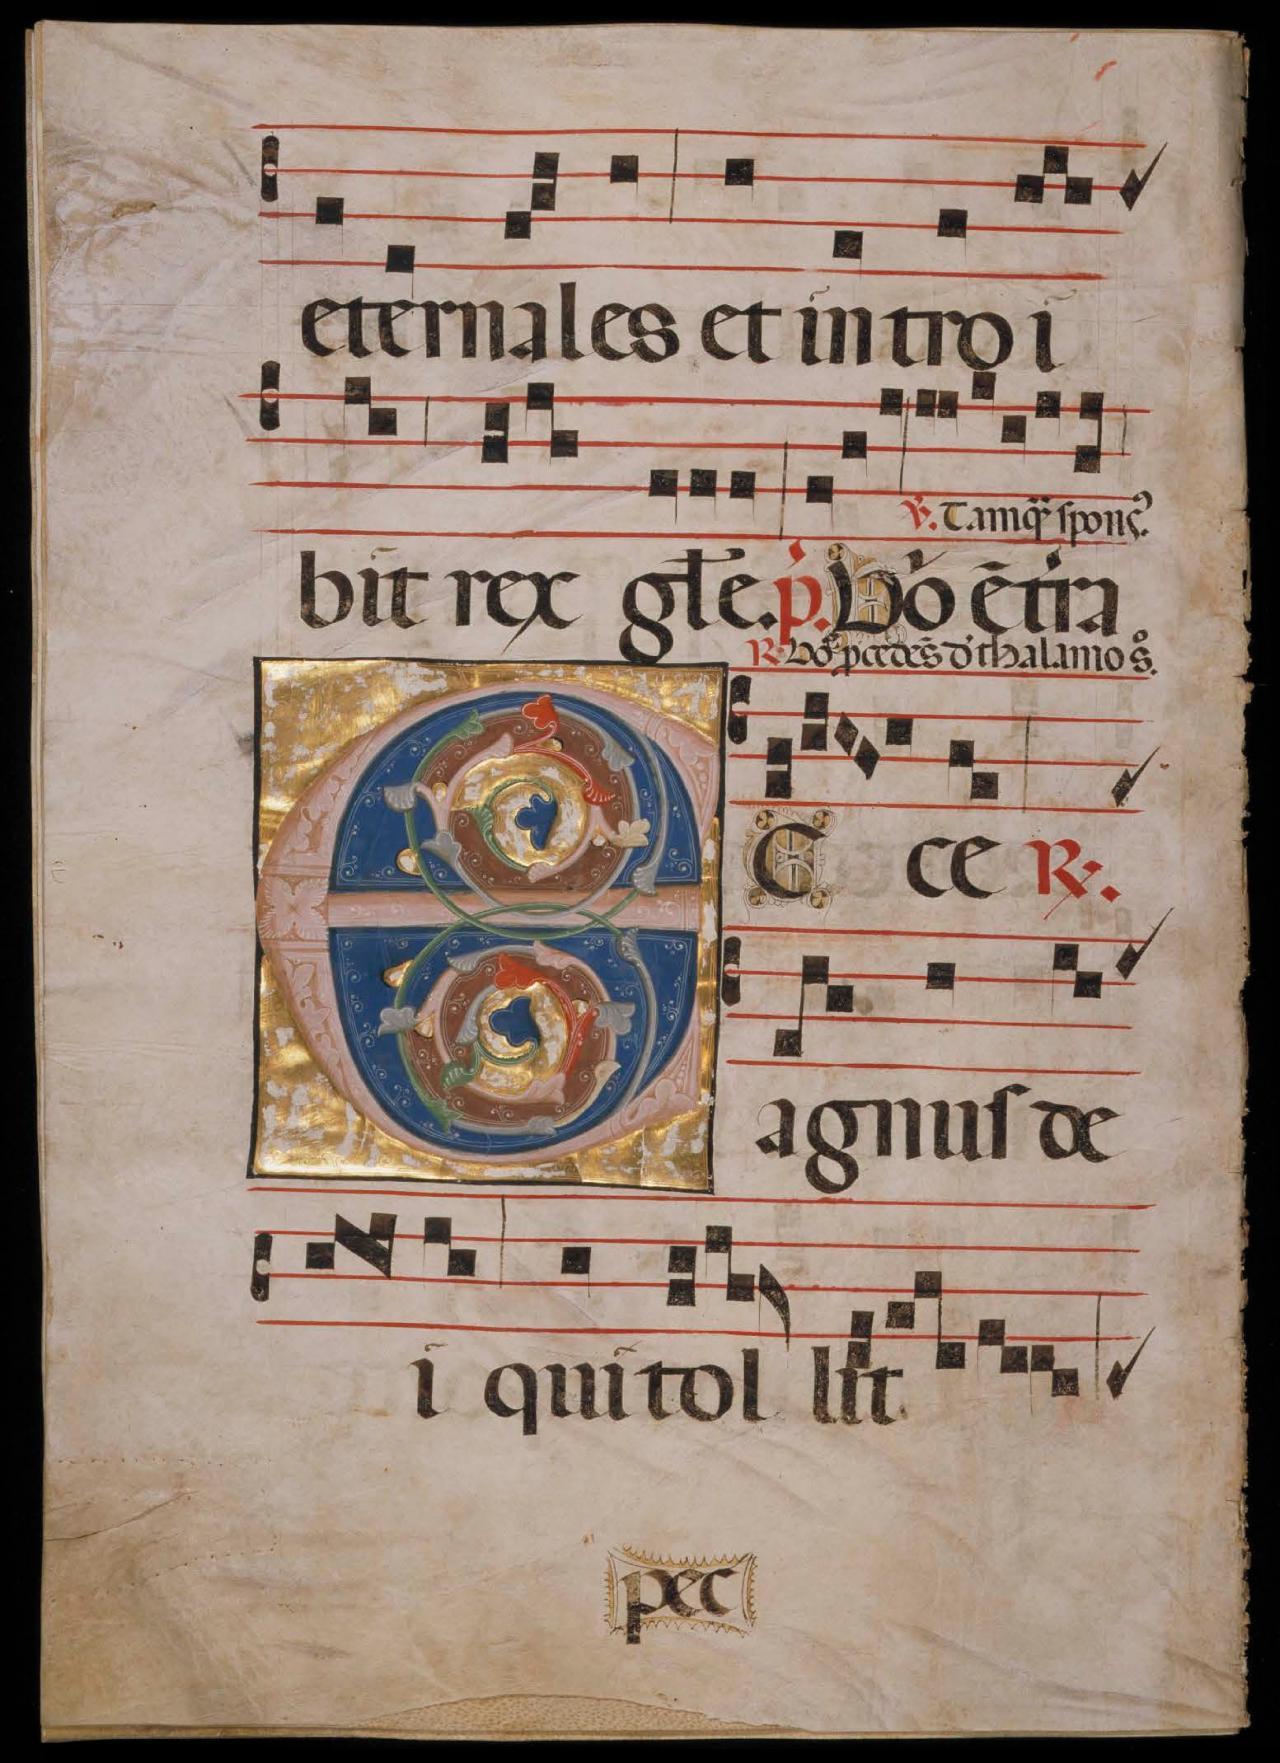 eternales et introi
℣. Tamqȝ sponsꝰ
bit rex gl̄e. p̄. Dō ēt̄ra
℟. Dn̄s p̄cedēs d' thalamo s.
E cce ℟.
agnus de
i qui tol lit
pec